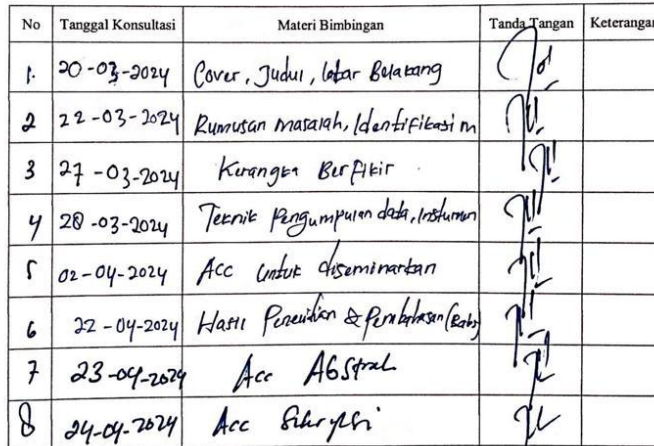 No Tanggal Konsultasi Materi Bimbingan Tanda Tangan Keterangan
1. 20-03-2024 Cover, Judul, latar Belakang
2 22-03-2024 Rumusan masalah, Identifikasi m
3 27-03-2024 Kerangka Berfikir
4 28-03-2024 Teknik Pengumpulan data, Instumen
5 02-04-2024 Acc untuk diseminarkan
6 22-04-2024 Hasil Penelitian & Pembahasan
7 23-04-2024 Acc ABStrak
8 24-04-2024 Acc Skripsi